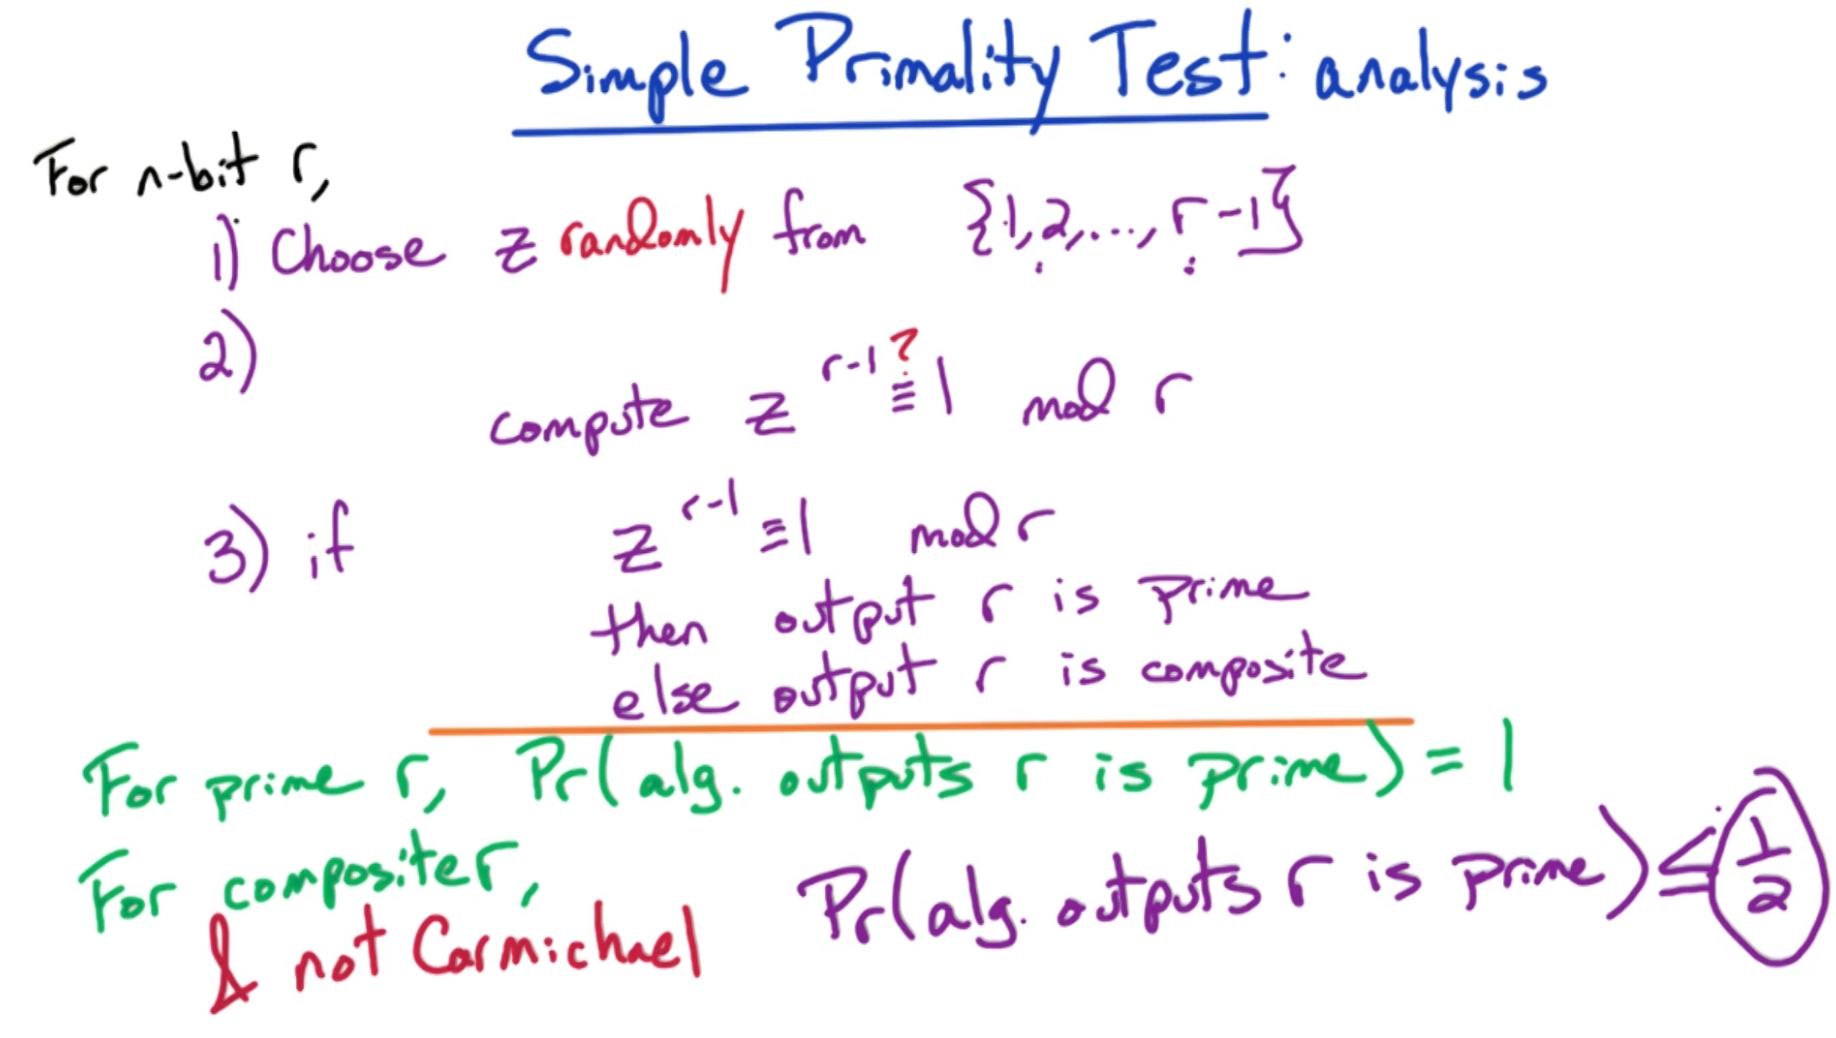 Simple Primality Test: analysis
For n-bit r,
1) Choose z randomly from {1,2,...,r-1}
2)
compute z^{r-1} ≡? 1 mod r
3) if z^{r-1} ≡ 1 mod r
then output r is prime
else output r is composite
For prime r, Pr(alg. outputs r is prime) = 1
For composite r, Pr(alg. outputs r is prime) ≤ 1/2
& not Carmichael